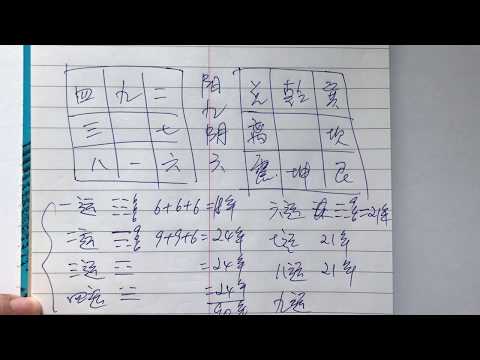 四 九 二
三 七
八 一 六
阳九阴六
兑 乾 巽
離 坎
震 坤 艮
一运 ☷ 6+6+6=18年
二运 9+9+6=24年
三运 =24年
四运 =24年
90年
六运 =21年
七运 21年
八运 21年
九运